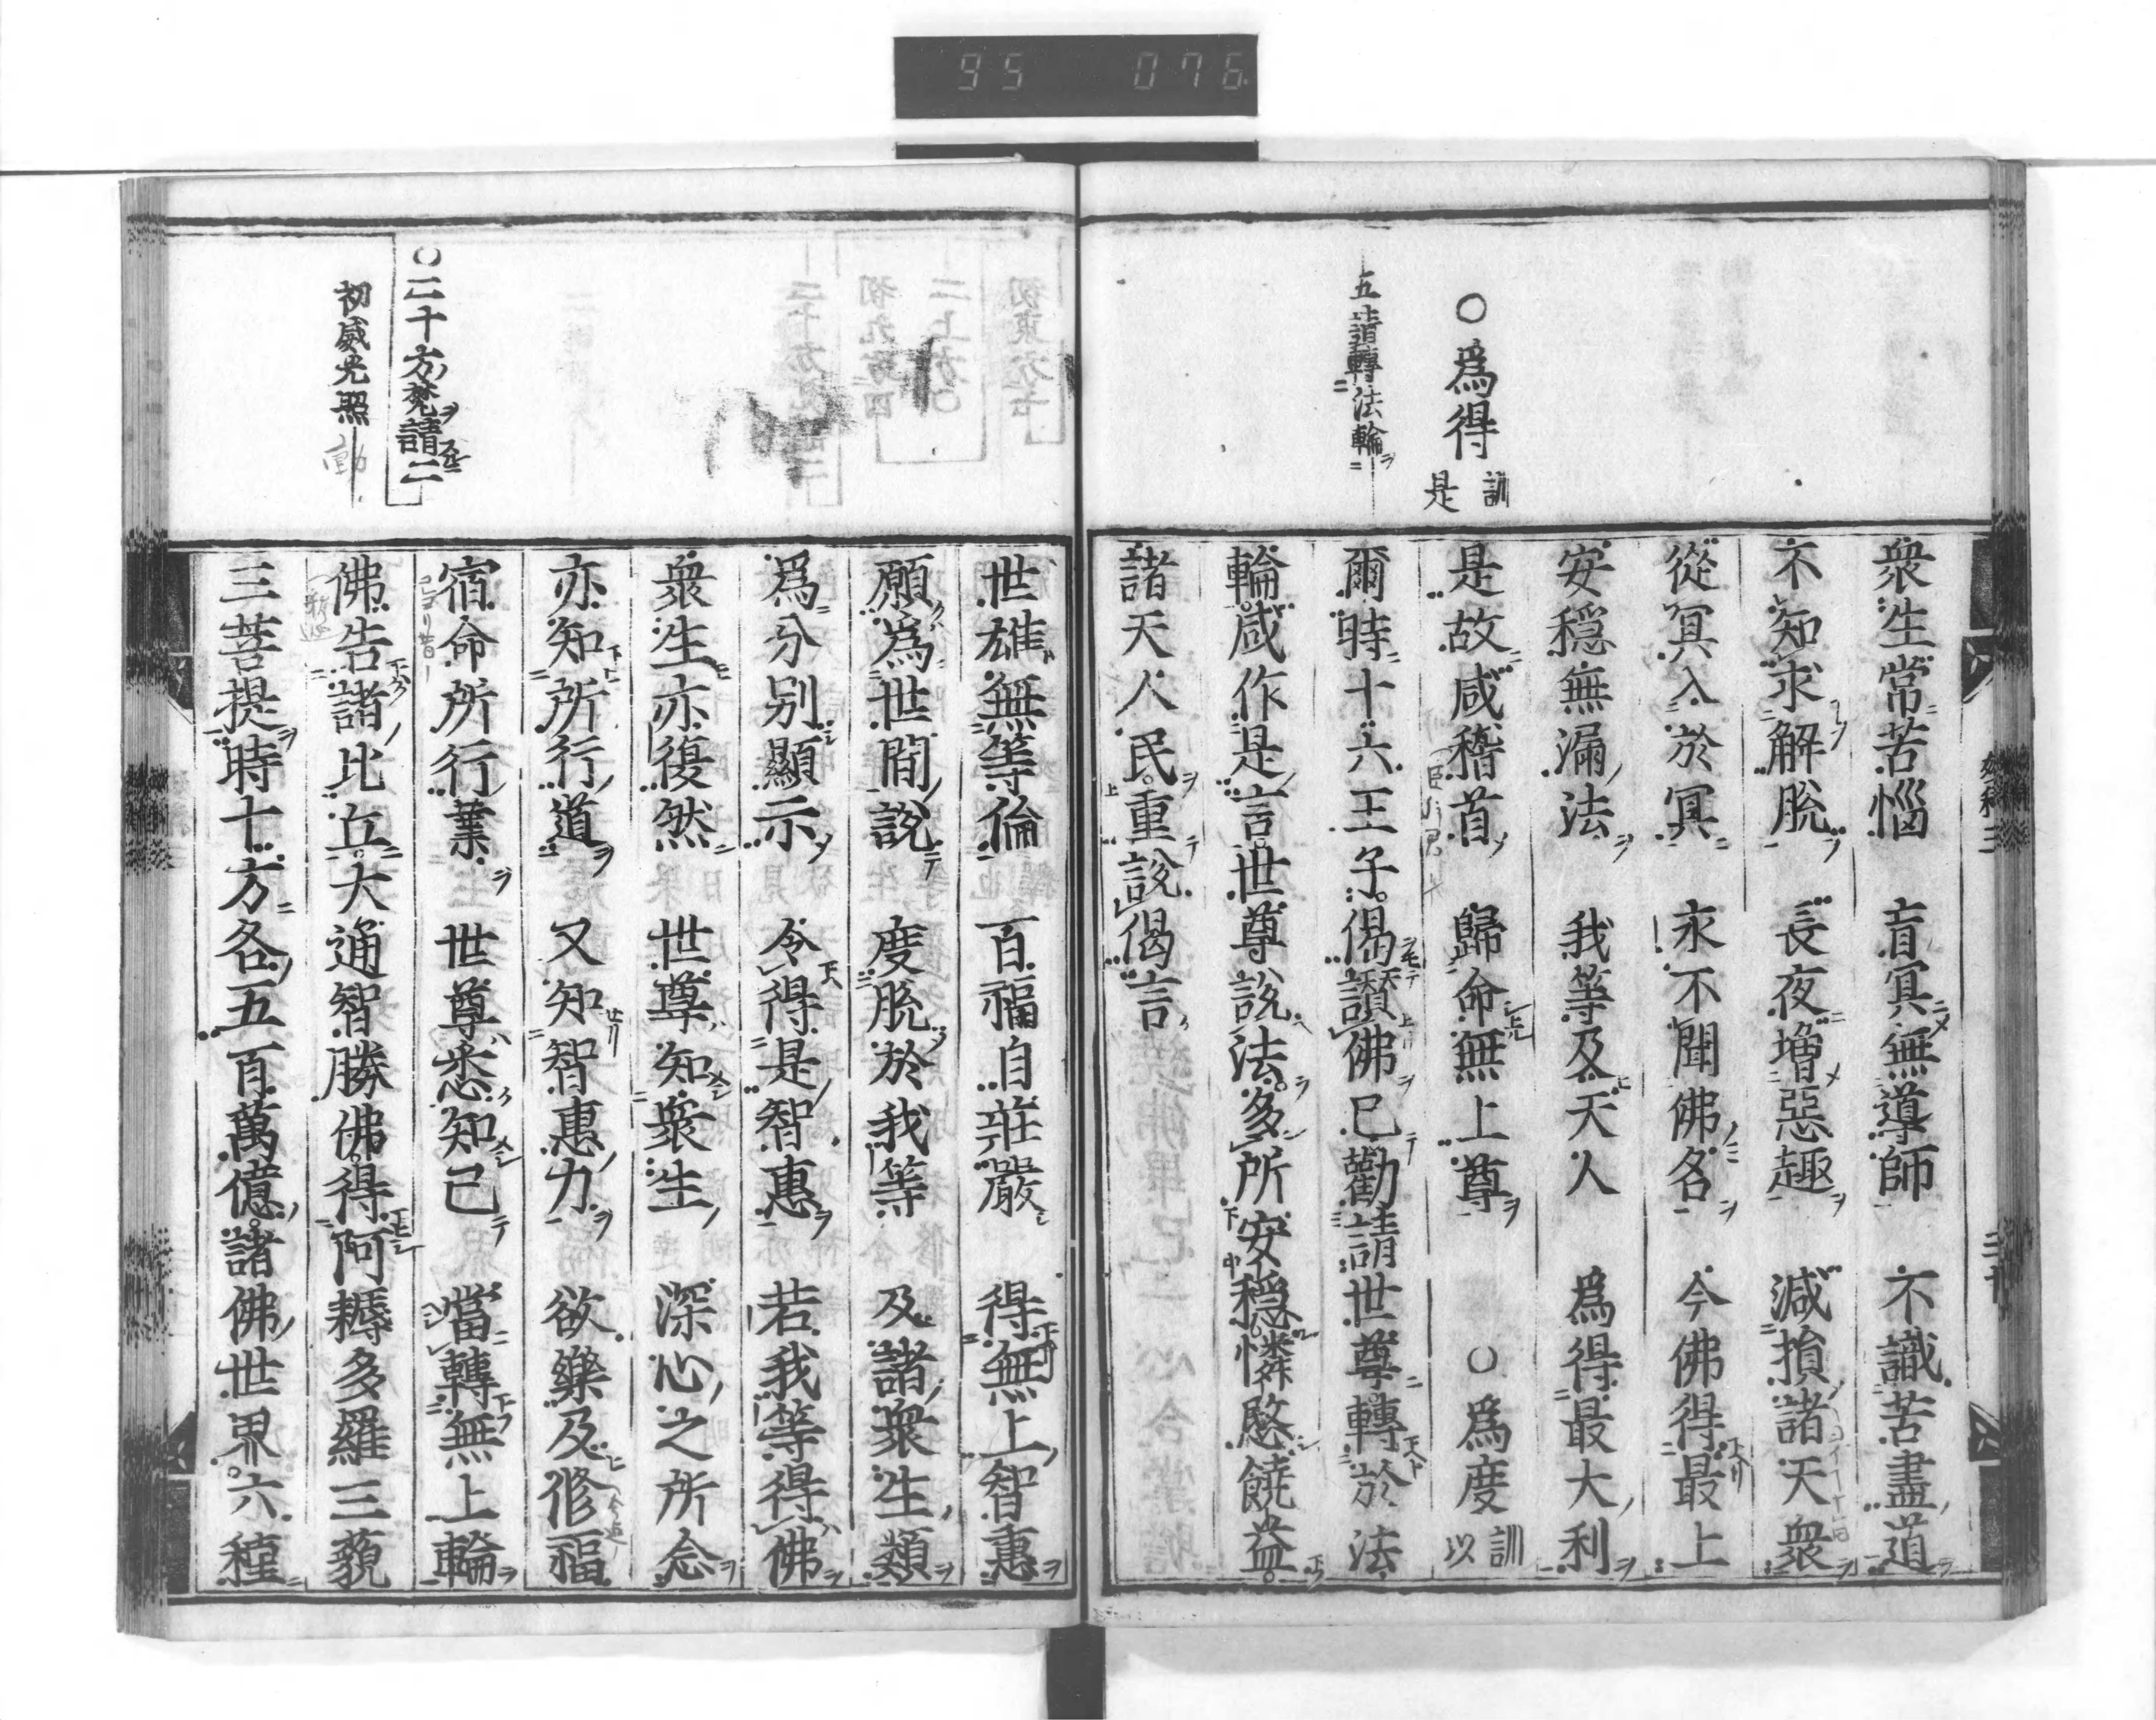 95 076
○爲得 訓是
五請轉法輪
衆生常苦惱 盲冥無導師 不識苦盡道
不知求解脫 長夜增惡趣 減損諸天衆
從冥入於冥 永不聞佛名 今佛得最上
安穩無漏法 我等及天人 爲得最大利
是故咸稽首 歸命無上尊 ○爲度 訓以
爾時十六王子偈讃佛已勸請世尊轉於法
輪咸作是言世尊說法多所安穩憐愍饒益
諸天人民重說偈言
○二十方梵請二
初威光照
世雄無等倫 百福自莊嚴 得無上智惠
願爲世間說 度脫於我等 及諸衆生類
爲分別顯示 令得是智惠 若我等得佛
衆生亦復然 世尊知衆生 深心之所念
亦知所行道 又知智惠力 欲樂及修福
宿命所行業 世尊悉知已 當轉無上輪
佛告諸比丘大通智勝佛得阿耨多羅三藐
三菩提時十方各五百萬億諸佛世界六種